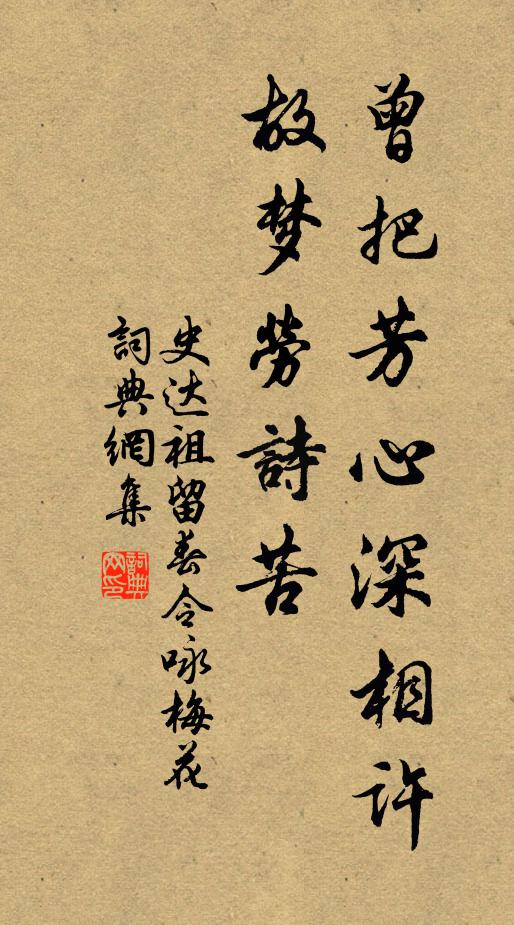 曾把芳心深相许
故梦勞詩苦
史达祖留春令咏梅花
詞典網集
詞典網印